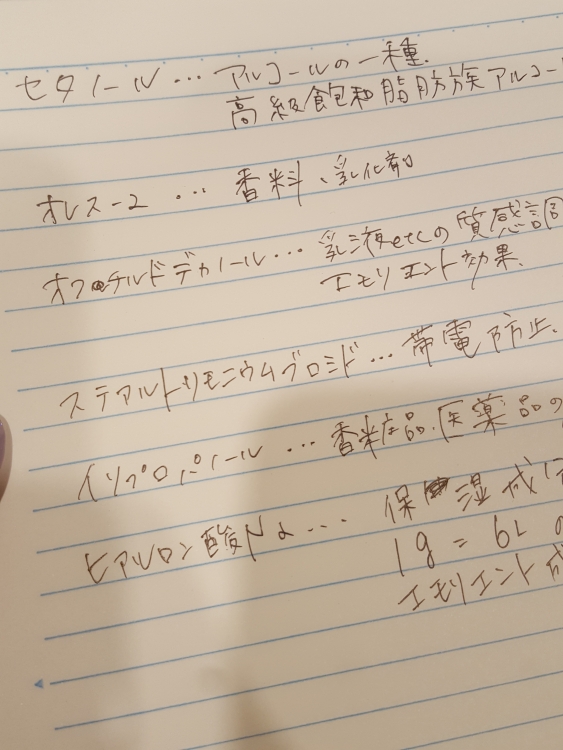 セタノール… アルコールの一種.
高級飽和脂肪族アルコー
オレス-2 … 香料、乳化剤
オクチルドデカノール… 乳液etcの質感調
エモリエント効果.
ステアルトリモニウムブロミド… 帯電防止.
イソプロパノール … 香粧品.医薬品の
ヒアルロン酸Na… 保湿成
1g = 6L の
エモリエント成